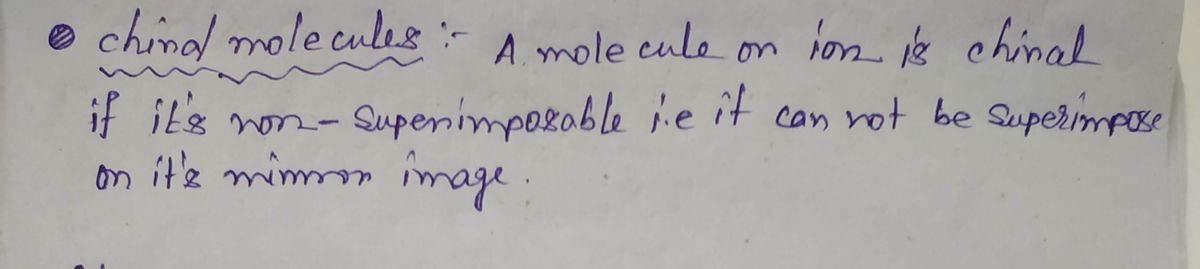 chiral molecules :- A molecule or ion is chiral
if it's non-superimposable i.e it can not be superimpose
on it's mirror image.